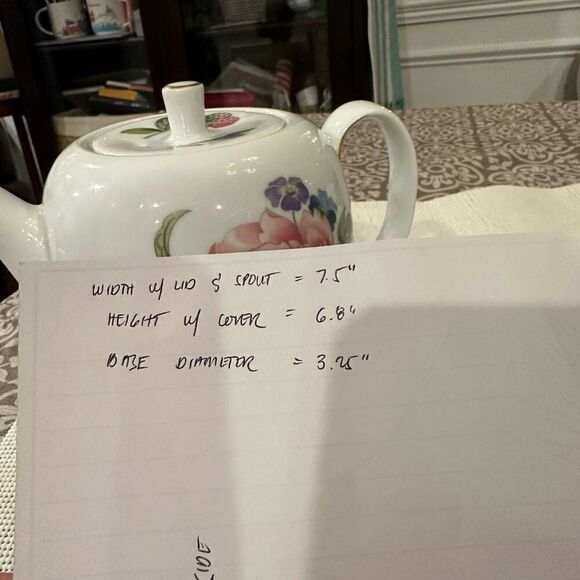 WIDTH W/ LID & SPOUT = 7.5"
HEIGHT W/ COVER = 6.8"
BASE DIAMETOR = 3.25"